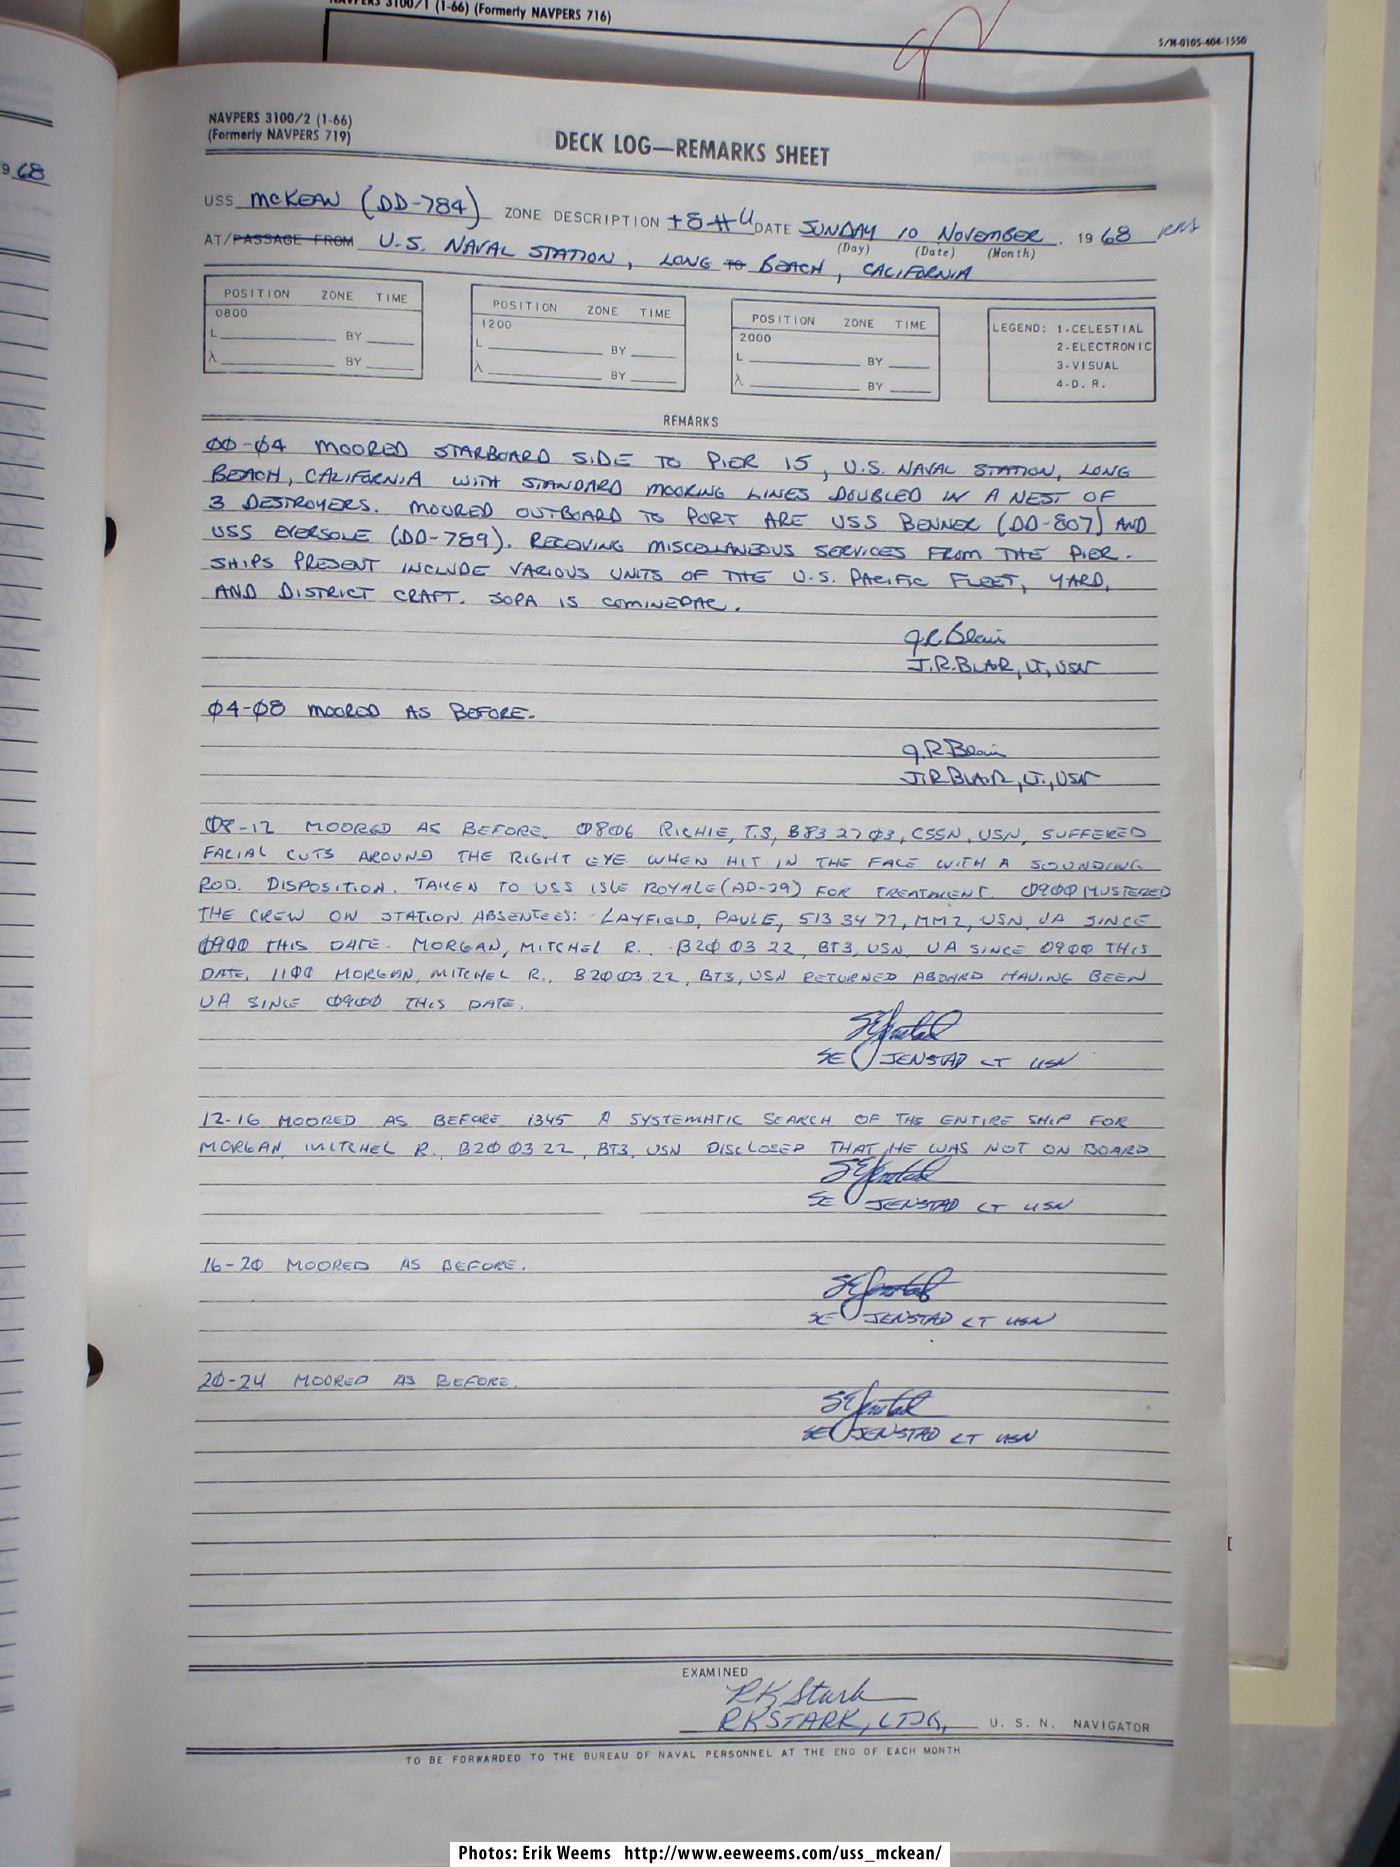 NAVPERS 3100/1 (1-66) (Formerly NAVPERS 716)
S/N-0105-404-1550
NAVPERS 3100/2 (1-66)
(Formerly NAVPERS 719)
DECK LOG—REMARKS SHEET
9 68
USS McKEAN (DD-784) ZONE DESCRIPTION +8 U DATE SUNDAY 10 NOVEMBER 19 68
(Day) (Date) (Month)
AT/PASSAGE FROM U.S. NAVAL STATION, LONG TO BEACH, CALIFORNIA
POSITION ZONE TIME
0800
L BY
λ BY
POSITION ZONE TIME
1200
L BY
λ BY
POSITION ZONE TIME
2000
L BY
λ BY
LEGEND: 1-CELESTIAL
2-ELECTRONIC
3-VISUAL
4-D. R.
REMARKS
00-04 MOORED STARBOARD SIDE TO PIER 15, U.S. NAVAL STATION, LONG
BEACH, CALIFORNIA WITH STANDARD MOORING LINES DOUBLED IN A NEST OF
3 DESTROYERS. MOORED OUTBOARD TO PORT ARE USS BENNER (DD-807) AND
USS EVERSOLE (DD-789). RECEIVING MISCELLANEOUS SERVICES FROM THE PIER.
SHIPS PRESENT INCLUDE VARIOUS UNITS OF THE U.S. PACIFIC FLEET, YARD,
AND DISTRICT CRAFT. SOPA IS COMINEPAC.
J.R. Blair
J.R. BLAIR, LT, USN
04-08 MOORED AS BEFORE.
J.R. Blair
J.R. BLAIR, LT., USN
08-12 MOORED AS BEFORE. 0806 RICHIE, T.S, B83 27 03, CSSN, USN, SUFFERED
FACIAL CUTS AROUND THE RIGHT EYE WHEN HIT IN THE FACE WITH A SOUNDING
ROD. DISPOSITION. TAKEN TO USS ISLE ROYALE (AD-29) FOR TREATMENT. 0900 MUSTERED
THE CREW ON STATION. ABSENTEES: LAYFIELD, PAUL E, 513 34 77, MM2, USN, UA SINCE
0900 THIS DATE. MORGAN, MITCHEL R. B20 03 22, BT3, USN UA SINCE 0900 THIS
DATE, 1100 MORGAN, MITCHEL R., B20 03 22, BT3, USN RETURNED ABOARD HAVING BEEN
UA SINCE 0900 THIS DATE.
SE Jenstad
SE JENSTAD LT USN
12-16 MOORED AS BEFORE 1345 A SYSTEMATIC SEARCH OF THE ENTIRE SHIP FOR
MORGAN, MITCHEL R., B20 03 22, BT3, USN DISCLOSED THAT HE WAS NOT ON BOARD
SE Jenstad
SE JENSTAD LT USN
16-20 MOORED AS BEFORE.
SE Jenstad
SE JENSTAD LT USN
20-24 MOORED AS BEFORE.
SE Jenstad
SE JENSTAD LT USN
EXAMINED
RK Stark
RK STARK, LTJG, U. S. N. NAVIGATOR
TO BE FORWARDED TO THE BUREAU OF NAVAL PERSONNEL AT THE END OF EACH MONTH
Photos: Erik Weems http://www.eeweems.com/uss_mckean/